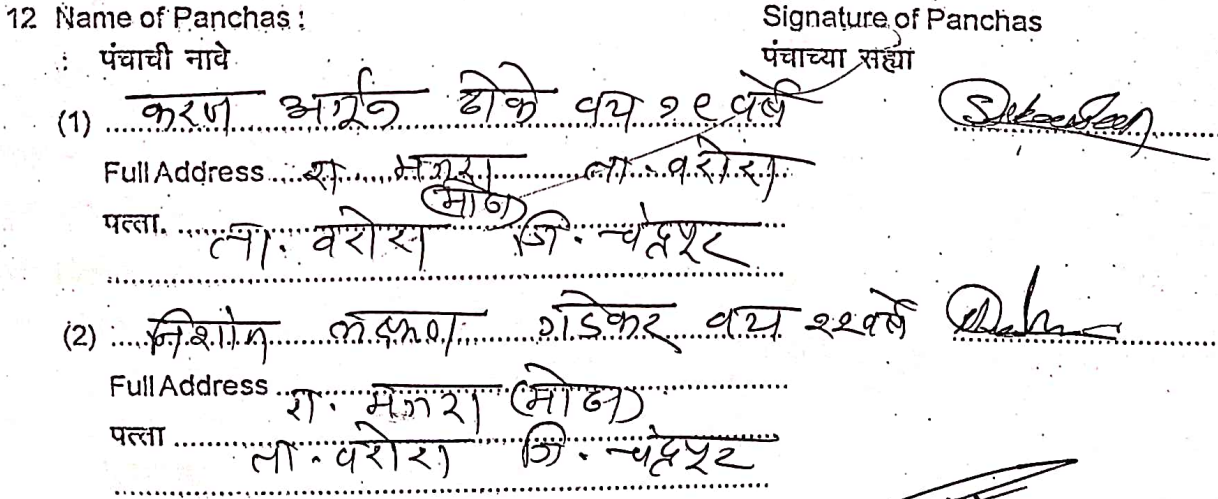 12 Name of Panchas : Signature of Panchas
: पंचाची नावे पंचाच्या सह्या
(1) करण अर्जून ढोके वय २९ वर्षे
Full Address रा. मजरा ता. वरोरा
(मोठा)
पत्ता. ता. वरोरा जि. चंद्रपूर
(2) लक्ष्मण गाडेकर वय २२ वर्षे
Full Address रा. मजरा (मोठा)
पत्ता ता. वरोरा जि. चंद्रपूर